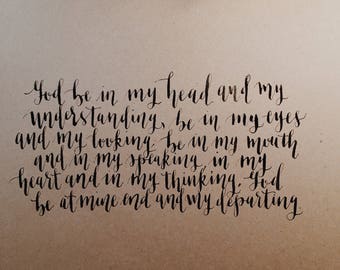 God be in my head and my
understanding, be in my eyes
and my looking be in my mouth
and in my speaking in my
heart and in my thinking, God
be at mine end and my departing